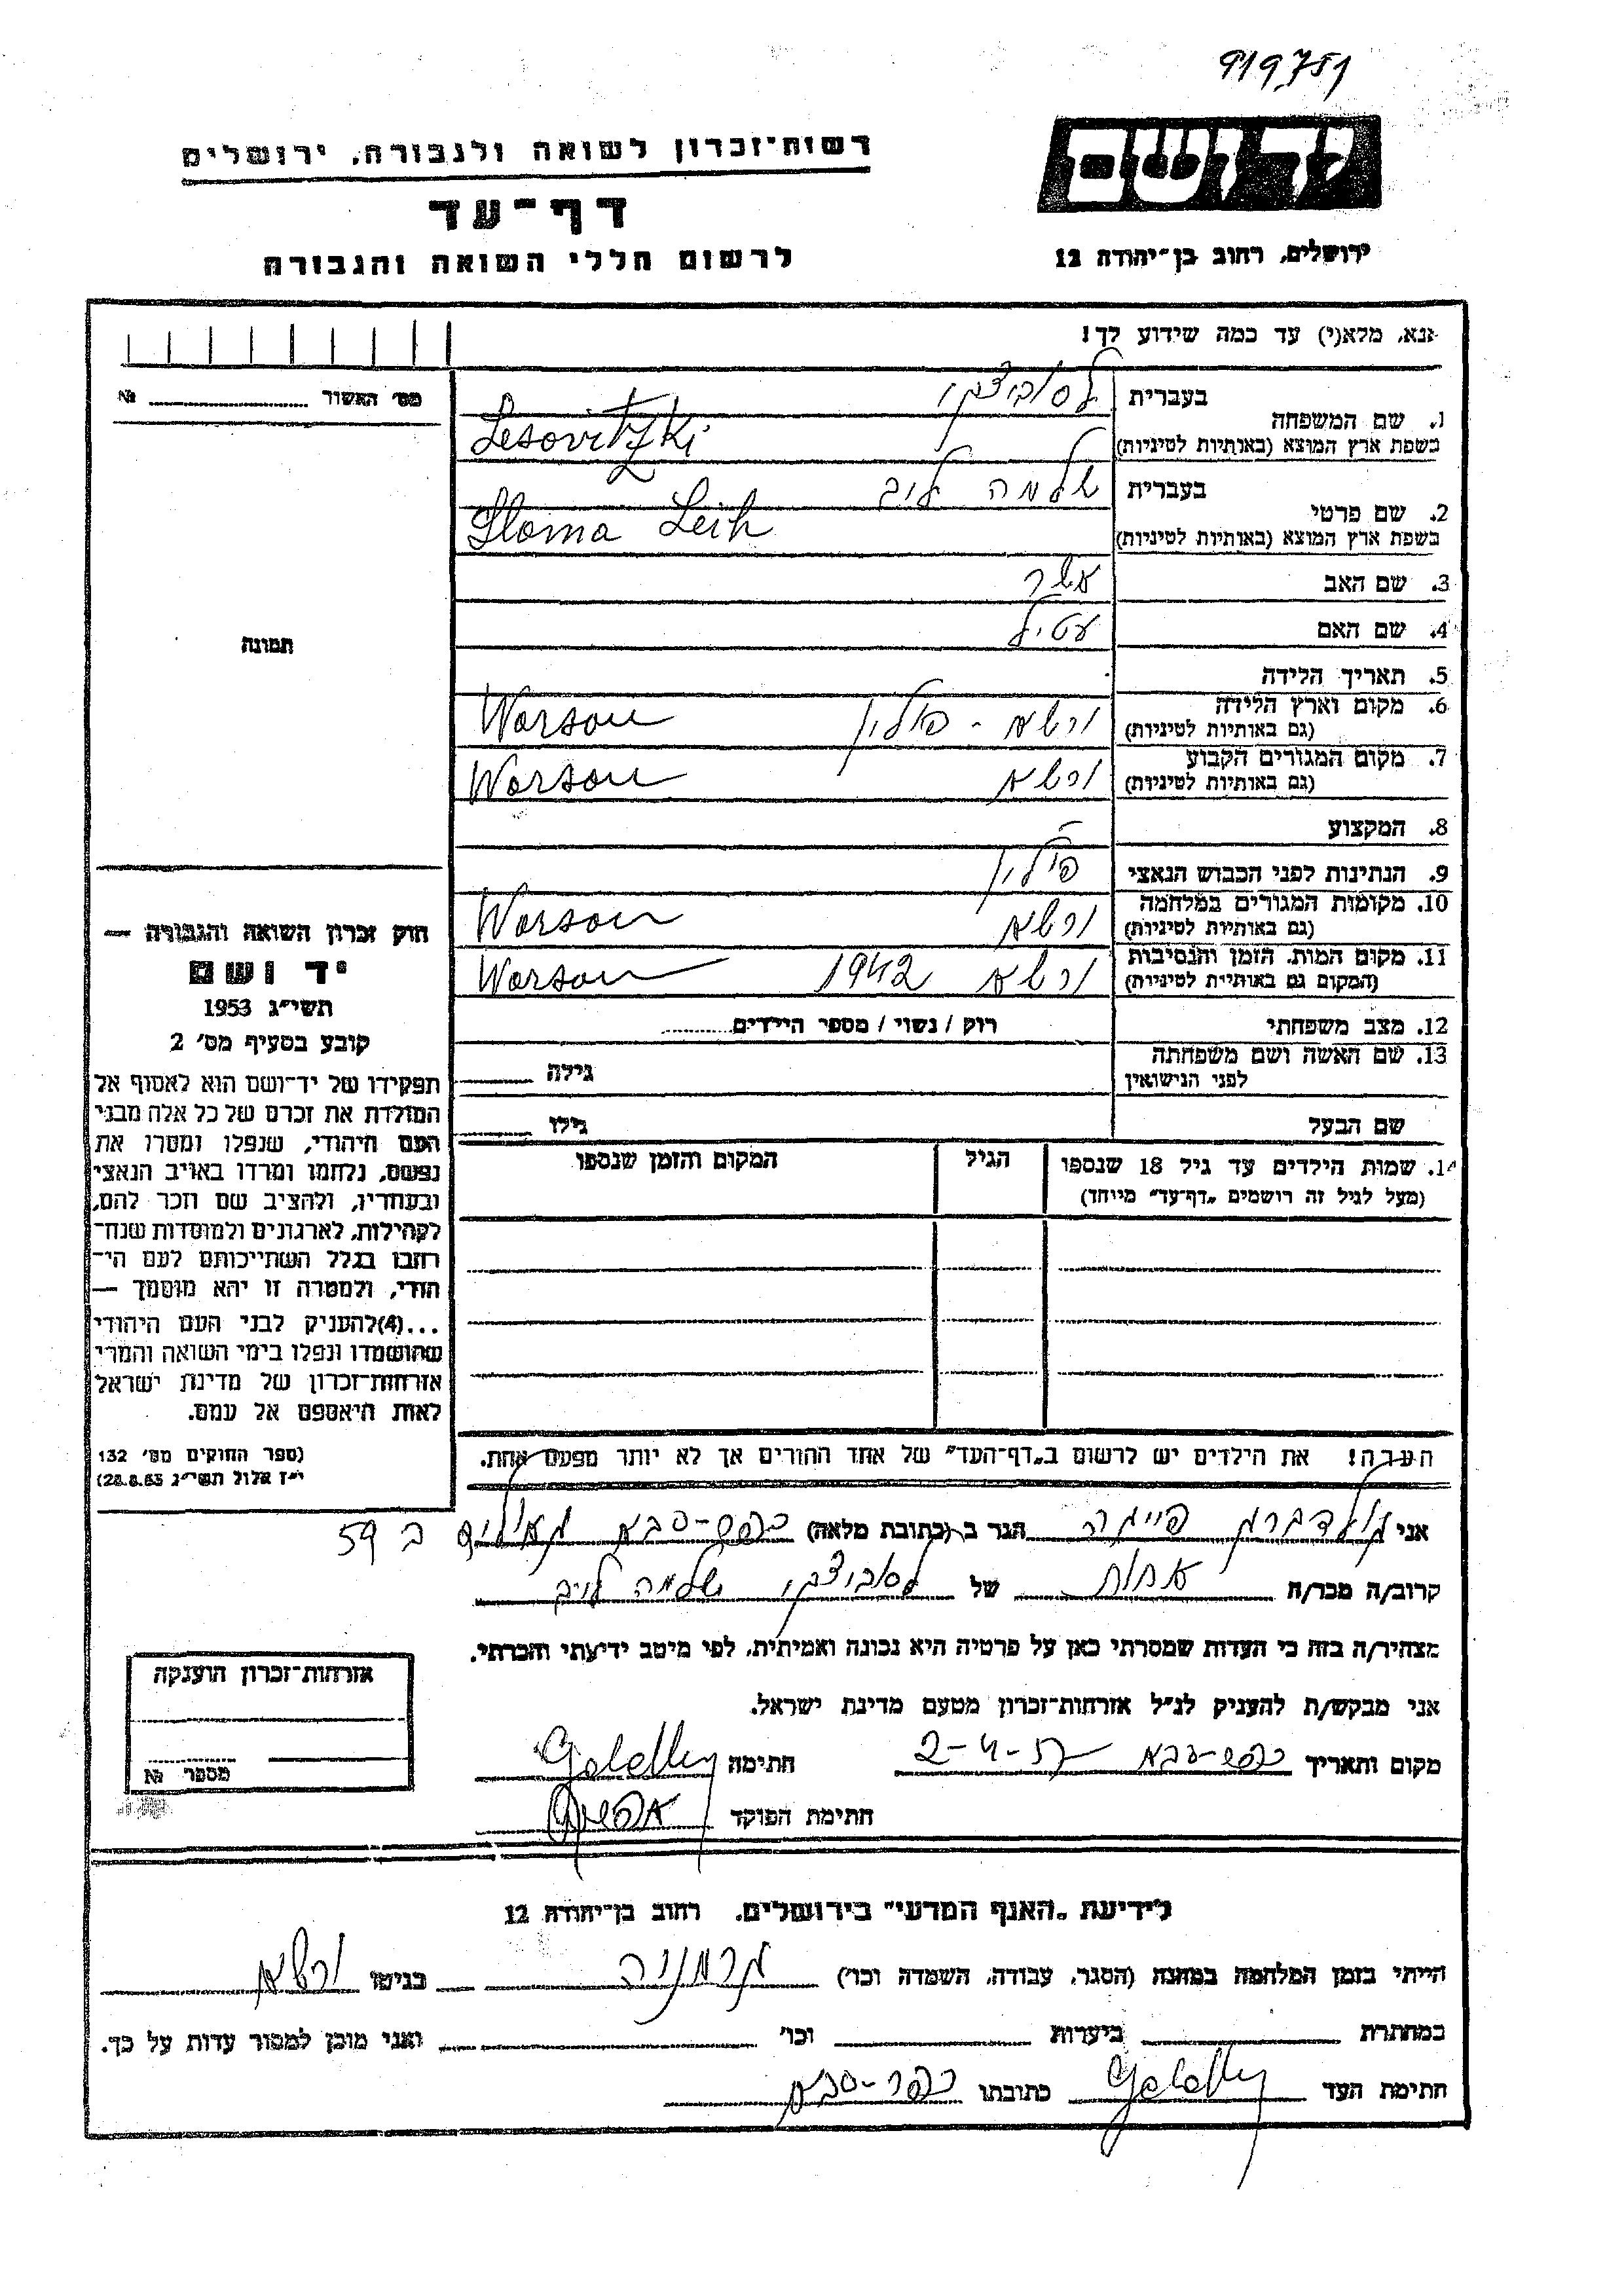 919751
יד ושם
רשות־זכרון לשואה ולגבורה, ירושלים
דף־עד
לרשום חללי השואה והגבורה
ירושלים, רחוב בן־יהודה 12
אנא, מלא(י) עד כמה שידוע לך!
מס׳ האשור № 
1. שם המשפחה
בעברית לסוביצקי
בשפת ארץ המוצא (באותיות לטיניות) Lesovitzki
2. שם פרטי
בעברית שלמה לייב
בשפת ארץ המוצא (באותיות לטיניות) Sloma Leib
3. שם האב אשר
4. שם האם
5. תאריך הלידה
6. מקום וארץ הלידה (גם באותיות לטיניות) ורשא - פולין Warsau
7. מקום המגורים הקבוע (גם באותיות לטיניות) ורשא Warsau
8. המקצוע –
9. הנתינות לפני הכבוש הנאצי פולין
10. מקומות המגורים במלחמה (גם באותיות לטיניות) ורשא Warsau
11. מקום המות, הזמן והנסיבות (המקום גם באותיות לטיניות) ורשא 1942 Warsau
12. מצב משפחתי רוק / נשוי / מספר הילדים
13. שם האשה ושם משפחתה לפני הנישואין גילה
שם הבעל גילו
14. שמות הילדים עד גיל 18 שנספו הגיל המקום והזמן שנספו
(מעל לגיל זה רושמים „דף־עד״ מייחד)
תמונה
חוק זכרון השואה והגבורה —
יד ושם
תשי״ג 1953
קובע בסעיף מס׳ 2
תפקידו של יד־ושם הוא לאסוף אל
המולדת את זכרם של כל אלה מבני
העם היהודי, שנפלו ומסרו את
נפשם, נלחמו ומרדו באויב הנאצי
ובעוזריו, ולהציב שם וזכר להם,
לקהילות, לארגונים ולמוסדות שנח־
רבו בגלל השתייכותם לעם הי־
הודי, ולמטרה זו יהא מוסמך —
...(4)להעניק לבני העם היהודי
שהושמדו ונפלו בימי השואה והמרי
אזרחות־זכרון של מדינת ישראל
לאות היאספם אל עמם.
(ספר החוקים מס׳ 132
י״ז אלול תשי״ג 28.8.53)
הערה! את הילדים יש לרשום ב„דף־העד״ של אחד ההורים אך לא יותר מפעם אחת.
אני גולדברג הגר ב (כתובת מלאה) כפר-סבא ב 59
קרוב/ה מכר/ה אחות של לסוביצקי שלמה לייב
מצהיר/ה בזה כי העדות שמסרתי כאן על פרטיה היא נכונה ואמיתית, לפי מיטב ידיעתי והכרתי.
אני מבקש/ת להעניק לנ״ל אזרחות־זכרון מטעם מדינת ישראל.
מקום ותאריך כפר-סבא 2-4-57 חתימה
חתימת הפוקד
אזרחות־זכרון הוענקה
מספר №
לידיעת „האגף המדעי״ בירושלים, רחוב בן־יהודה 12
הייתי בזמן המלחמה במחנה (הסגר, עבודה, השמדה וכו׳) גרמניה בגיטו ורשא
במחתרת ביערות וכו׳ ואני מוכן למסור עדות על כך.
חתימת העד כתובתו כפר-סבא